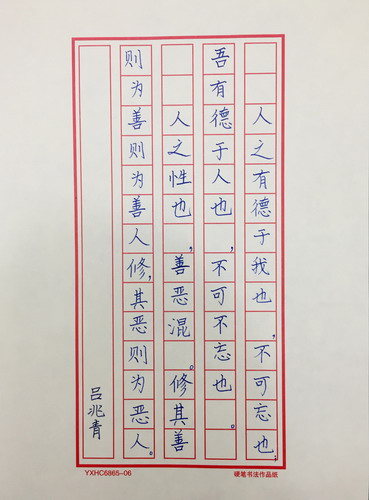 人之有德于我也,不可忘也;
吾有德于人也,不可不忘也。
人之性也,善恶混。修其善
则为善则为善人修,其恶则为恶人。
吕兆青
YXHC6865-06
硬笔书法作品纸